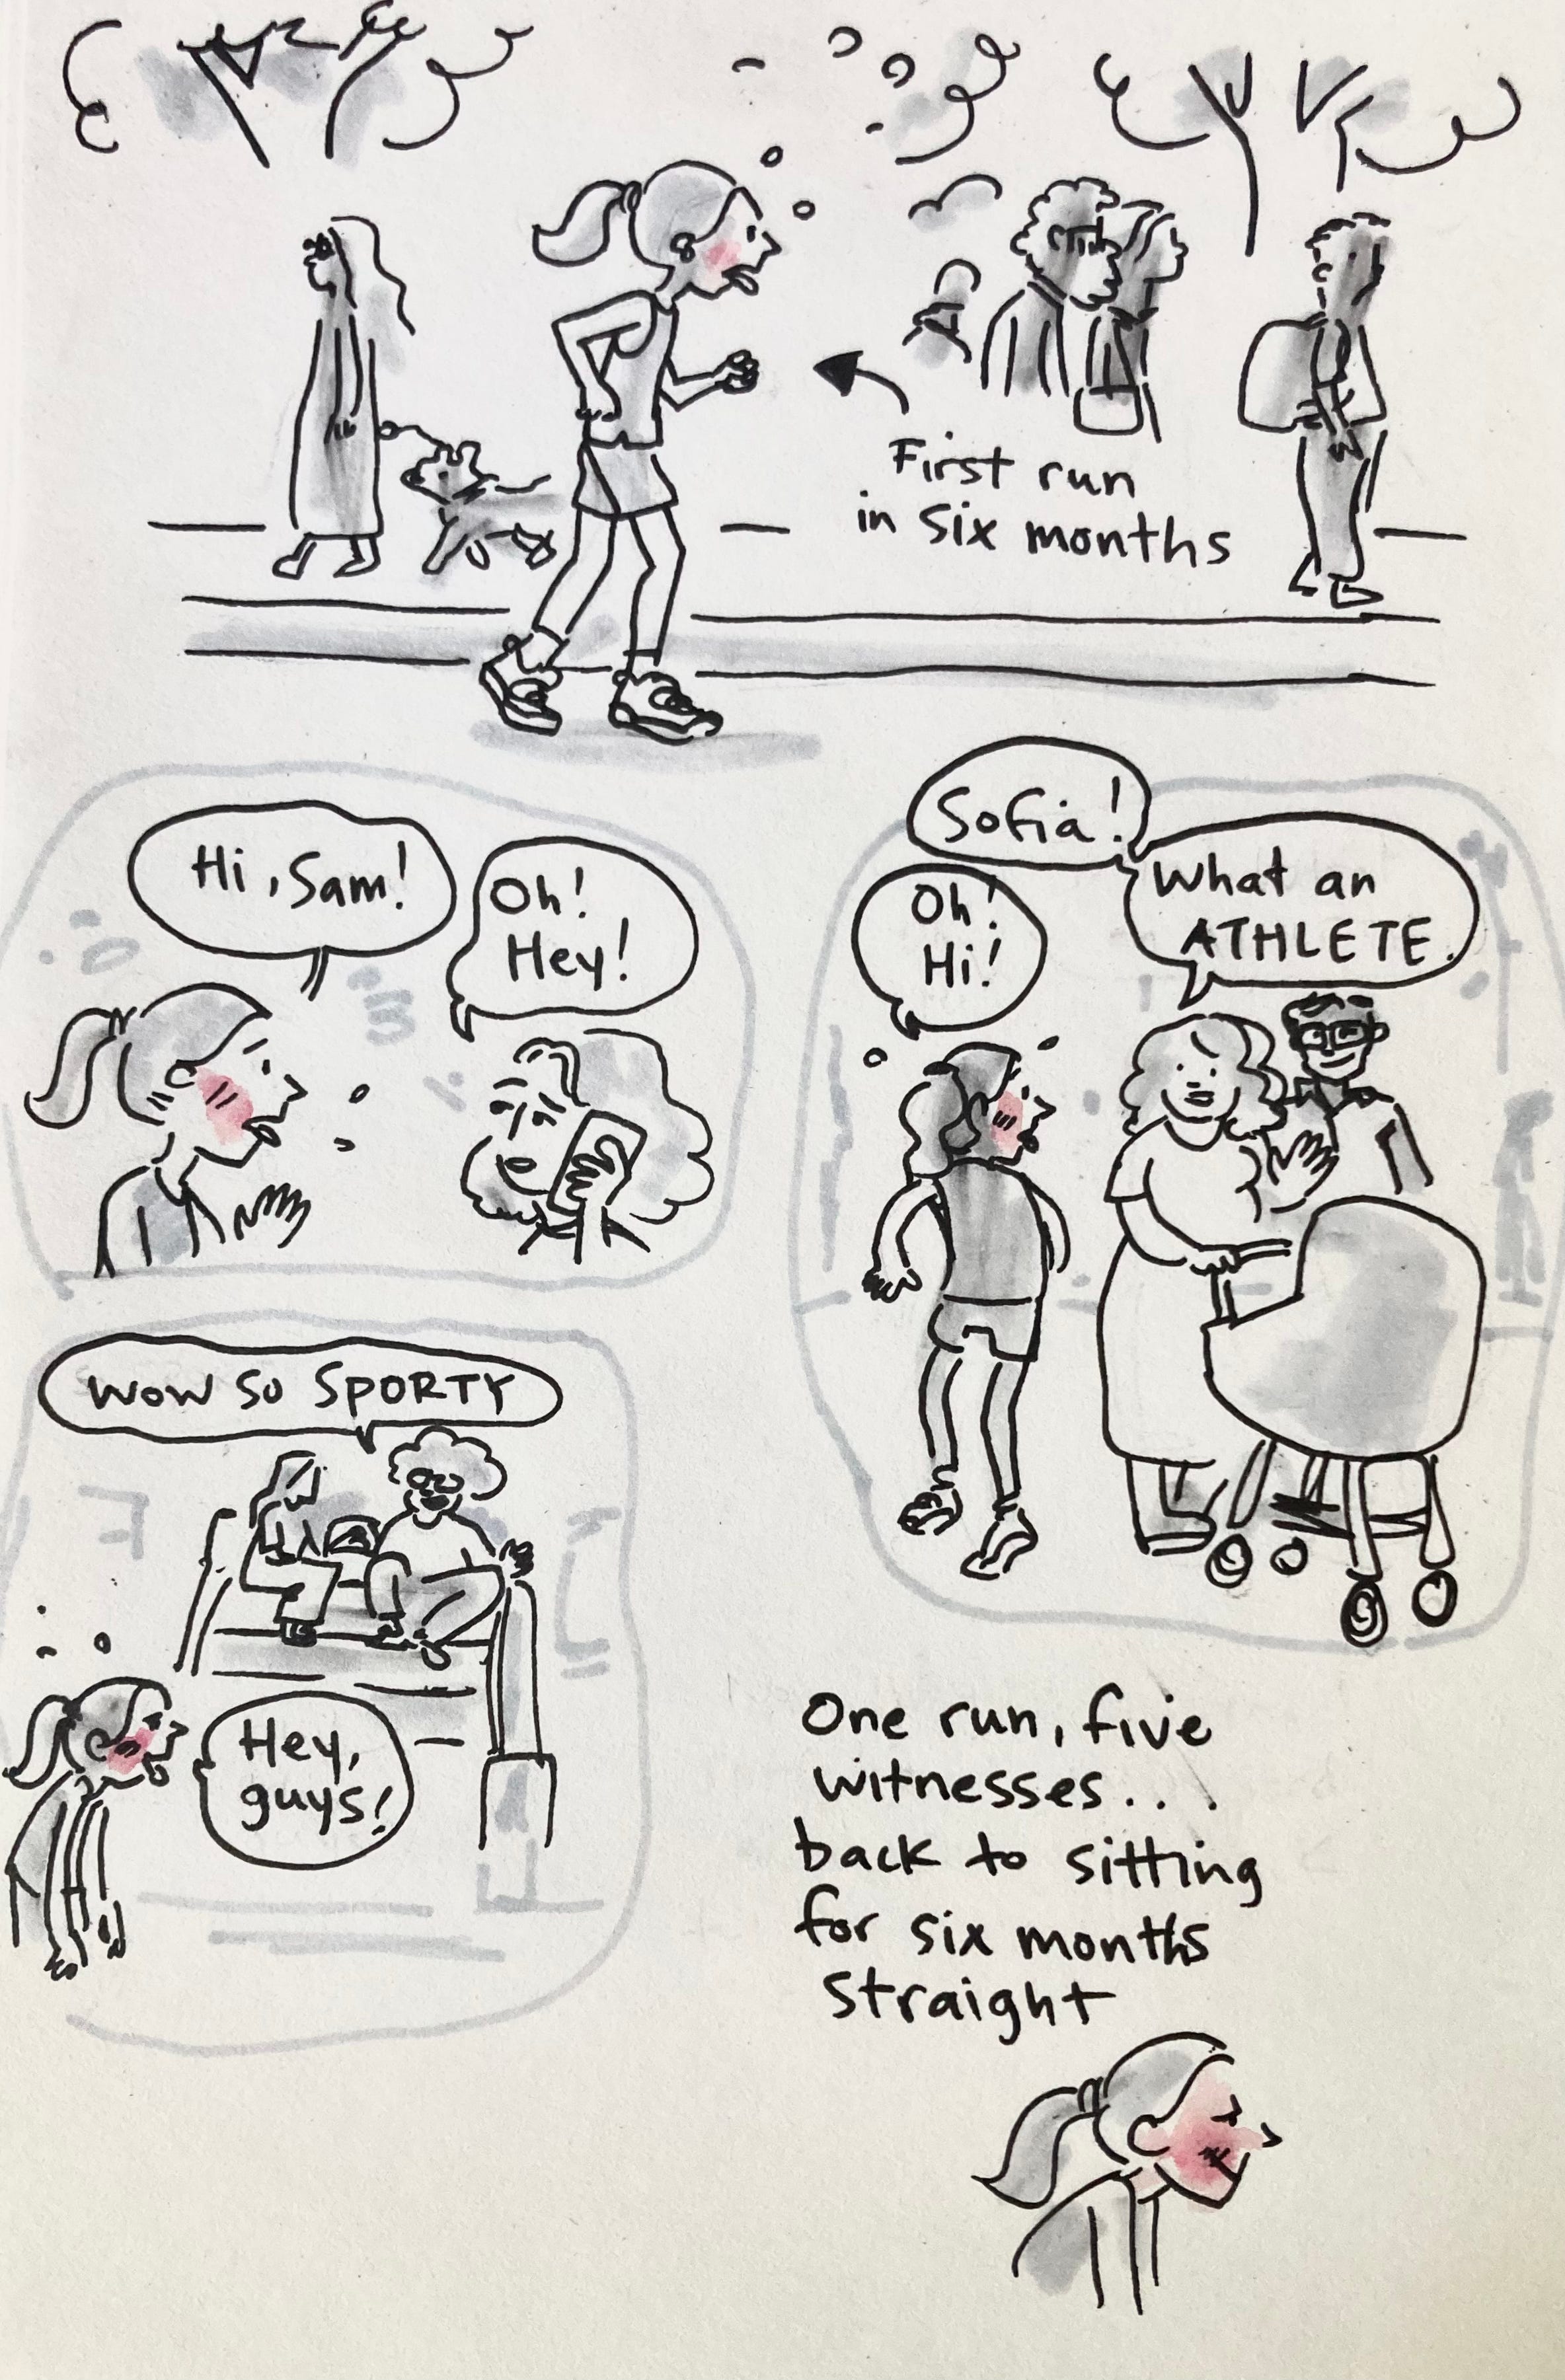 First run
in six months
Hi, Sam!
Oh!
Hey!
Sofia!
What an
ATHLETE.
Oh!
Hi!
WOW SO SPORTY
Hey,
guys!
One run, five
witnesses...
back to sitting
for six months
straight